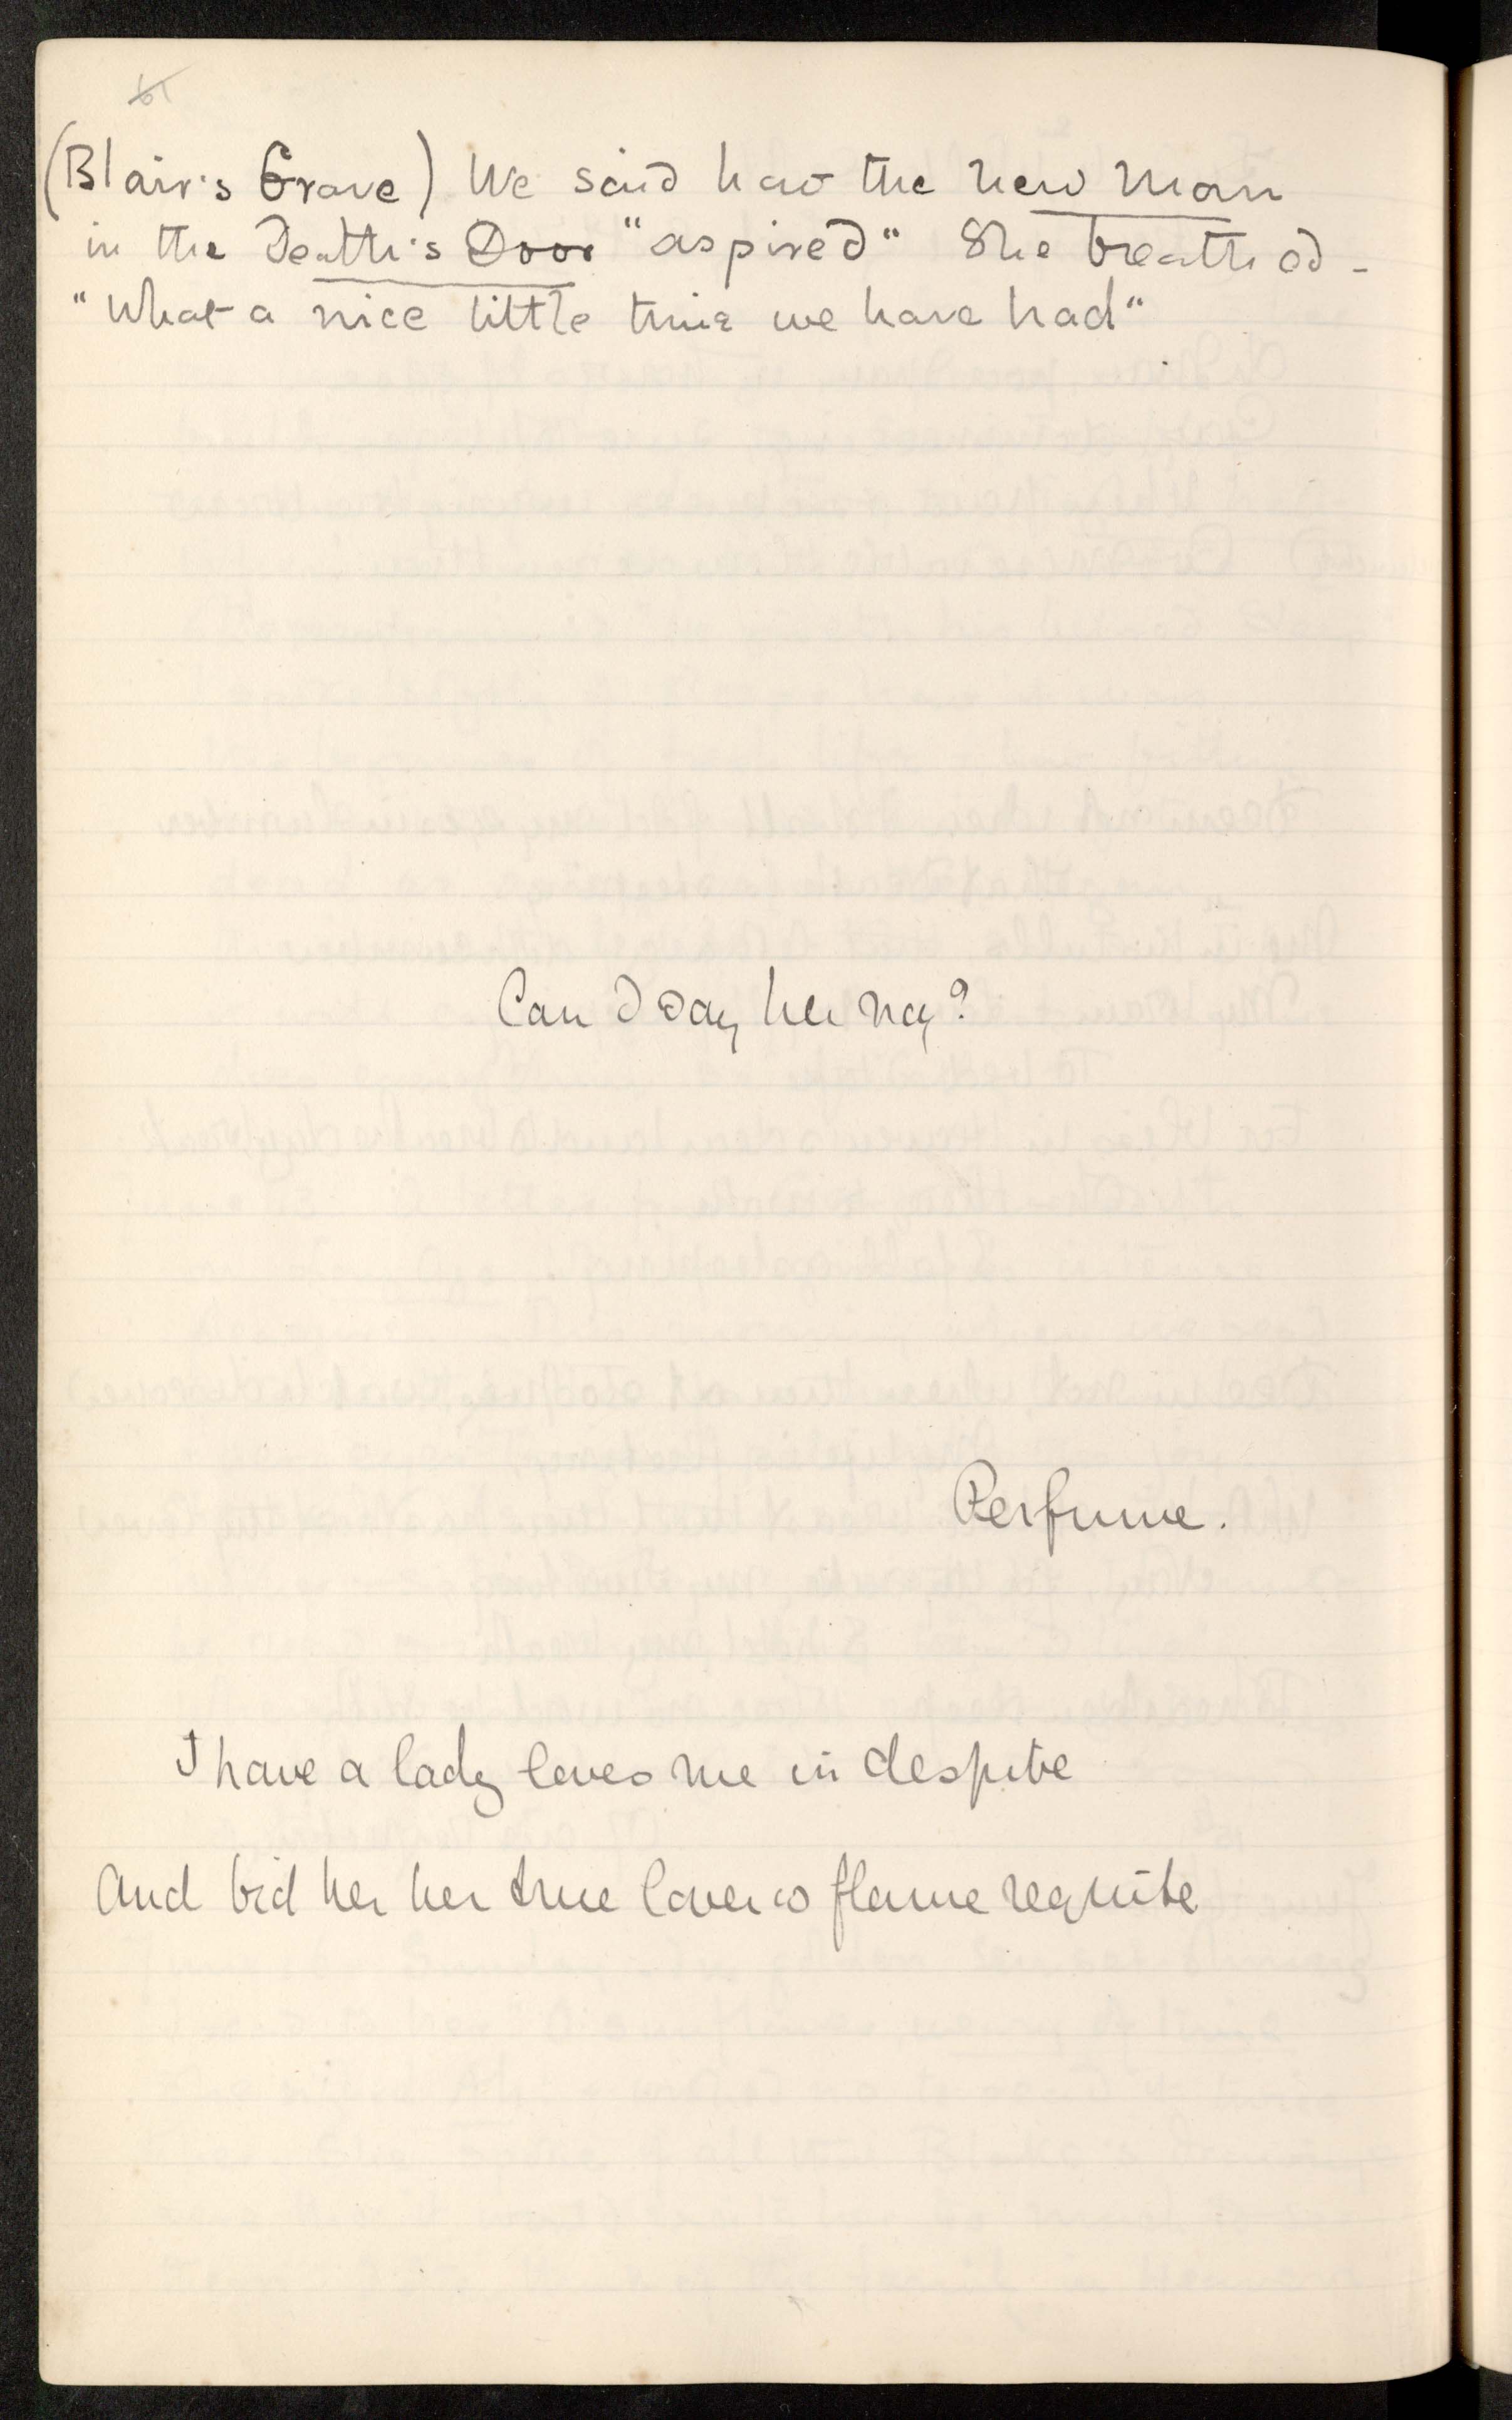 (Blair's Grave) We said how the new man
in the Death's Door "aspired" She breathed -
"What a nice little time we have had"
Can I say her nay?
Perfume.
I have a lady loves me in despite
And bid her her true lover's flame requite